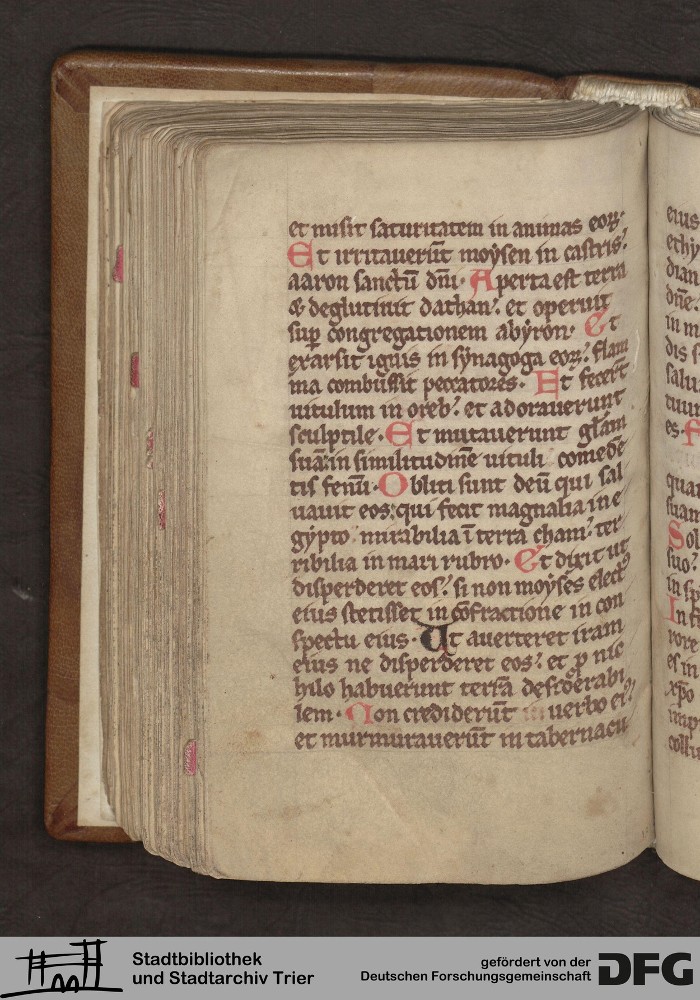 et misit saturitatem in animas eoꝝ.
Et irritauerūt moẏsen in castris:
aaron sanctū dn̄i. Aperta est terra
& deglutiuit dathan: et operuit
suꝑ congregationem abẏron. Et
exarsit ignis in sẏnagoga eoꝝ: flam
ma combussit peccatores. Et fecerūt
uitulum in oreb: et adorauerunt
sculptile. Et mutauerunt gl̄am
suā: in similitudinē uituli comedē
tis fenū. Obliti sunt deū qui sal
uauit eos: qui fecit magnalia in e
gẏpto mirabilia ī terra cham: ter
ribilia in mari rubro. Et dixit ut
disperderet eos: si non moẏses elect᷒
eius stetisset in cōfractione in con
spectu eius. Ut auerteret iram
eius ne disperderet eos: et ꝓ nic
hilo habuerunt terrā desiderabi
lem. Non crediderūt in uerbo ei᷒:
et murmurauerūt in tabernacu
eius
ethy
dian
dn̄e:
in m
dis s
salu
tuum
es.
quar
suam
Sol
suo:
in sp
In fi
rore
es in
xp̄o
imp
collu
Stadtbibliothek
und Stadtarchiv Trier
gefördert von der
Deutschen Forschungsgemeinschaft
DFG